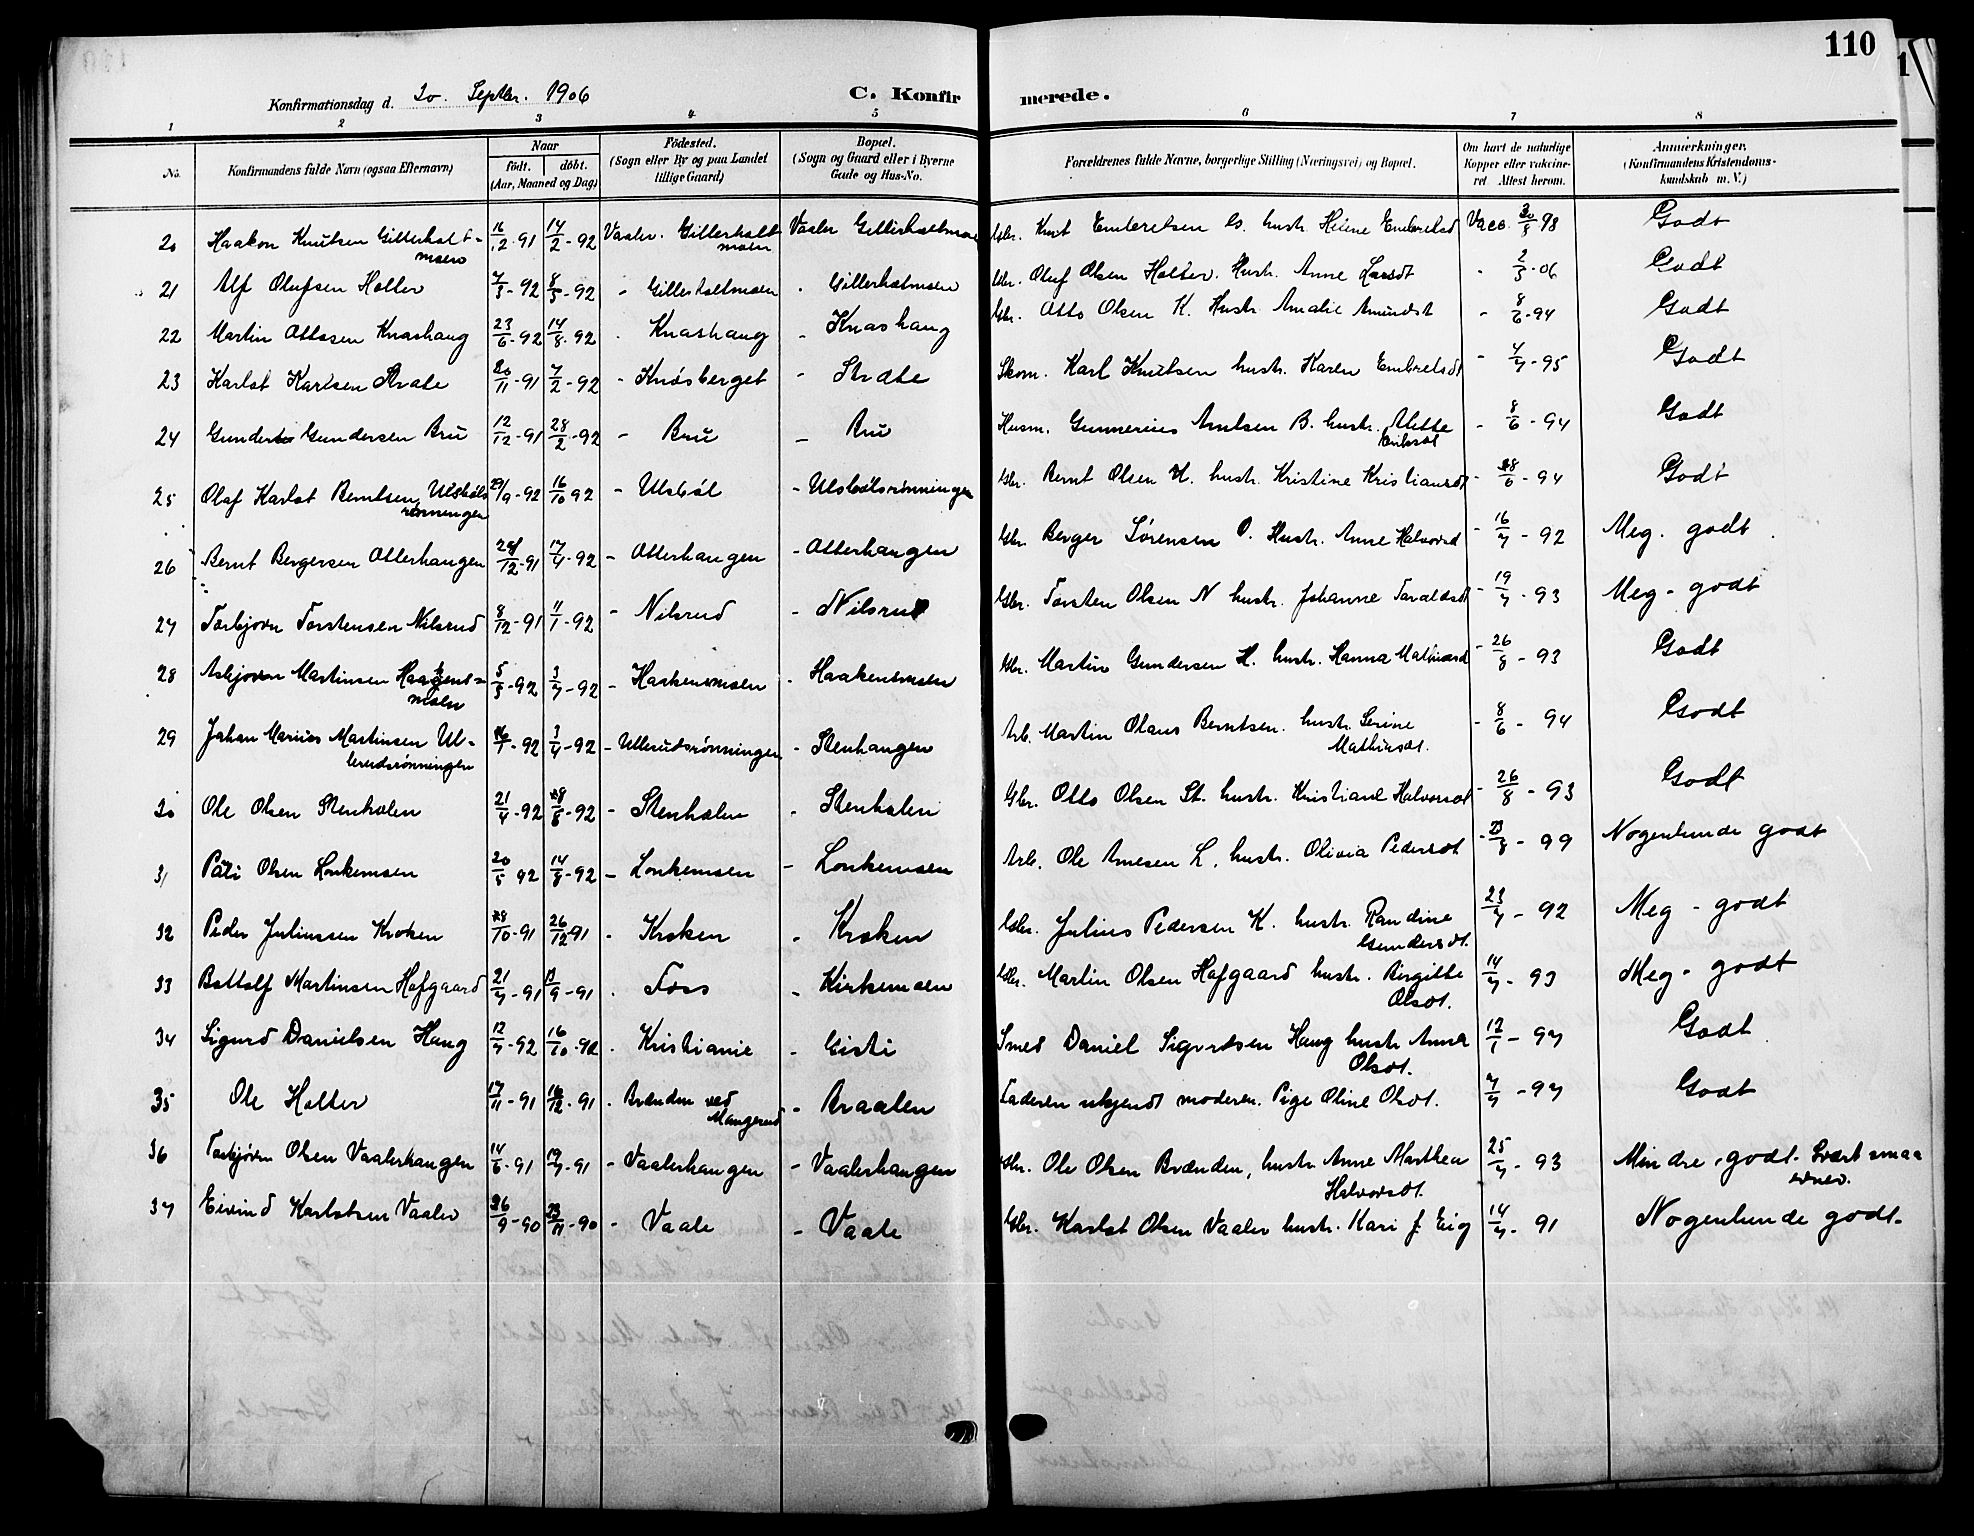 110
Konfirmationsdag d. 30. Septbr. 1906
C. Konfirmerede.
1 2 3 4 5 6 7 8
No. Konfirmandens fulde Navn (ogsaa Efternavn) Naar født. døbt. (Aar, Maaned og Dag) Fødested. (Sogn eller By og paa Landet tillige Gaard) Bopæl. (Sogn og Gaard eller i Byerne Gade og Hus-No. Forældrenes fulde Navne, borgerlige Stilling (Næringsvei) og Bopæl. Om havt de naturlige Kopper eller vaccineret Attest herom. Anmærkninger. (Konfirmandens Kristendomskundskab m. V.)
20 Haakon Knutsen Gillerholtmoen 16/12-91 14/2-92 Vaaler. Gillerholtmoen Vaaler Gillerholtmoen Gbr. Knut Embretsen G. hustr. Helene Embretsd Vacc. 30/8 98 Godt
21 Alf Olufsen Holter 7/3-92 8/5-92 - Gillerholtmoen - Gillerholtmoen Gbr. Oluf Olsen Holter. Hustr. Anne Larsdt - 2/5-06 Godt
22 Martin Ottosen Knashaug 23/6-92 14/8-92 - Knashaug - Knashaug Gbr. Otto Olsen K. Hustr. Amalie Amundst - 8/6-94 Godt
23 Karlot Karlsen Strate 20/11-91 7/2-92 - Knøsberget - Strate Skom. Karl Knutsen hustr. Karen Embretsdt - 4/7-95 Godt
24 Gunder Gundersen Bru 12/12-91 28/2-92 - Bru - Bru Husm. Gunnerius Amtsen B. hustr. Mette Eriksdt - 8/6-94 Godt
25 Olaf Karlot Berntsen Ulsbølsrønningen 29/9-92 16/10 92 - Ulsbøl - Ulsbølsrønningen Gbr. Bernt Olsen U. hustr. Kristine Kristiansdt - 8/6-94 Godt
26 Bernt Bergersen Otterhaugen 29/12-91 17/4-92 - Otterhaugen - Otterhaugen Gbr. Berger Sørensen O. Hustr. Anne Halvorsd - 16/7-92 Meg. godt
27 Torbjørn Torstensen Nilsrud 8/12-91 11/1-92 - Nilsrud - Nilsrud Gbr. Torsten Olsen N hustr. Johanne Taraldsdt - 19/7-93 Meg-godt
28 Asbjørn Martinsen Haakensmoen 5/3-92 3/7-92 - Haakensmoen - Haakensmoen Gbr. Martin Gundersen H. hustr. Hanna Mathisesd - 26/8-93 Godt
29 Johan Marius Martinsen Ullerudsrønningen 16/1-92 3/4-92 - Ullerudsrønningen - Stenhaugen Arb. Martin Olaus Berntsen. hustr. Serine Mathisdt. - 8/6-94 Godt
30 Ole Olsen Stenholen 21/4-92 8/6-92 - Stenholen - Stenholen Gbr. Otto Olsen St. hustr. Kristiane Halvorsdt - 26/8-93 Godt
31 Olsen Lonkemoen 20/5 92 14/8-92 - Lonkemoen - Lonkemoen Arb. Ole Arnesen L. hustr. Olivia Pedersdt - 23/8-99 Nogenlunde godt
32 Peder Juliussen Kroken 8/10-91 26/12-91 - Kroken - Kroken Gbr. Julius Pedersen K. hustr. Randine Gundersdt. 23/7-92 Meg-godt
33 Bottolf Martinsen Hofgaard 21/7-91 13/9-91 - Foss - Kirkemoen Gbr. Martin Olsen Hofgaard hustr. Birgitte Olsdt. 14/7-93 Meg-godt
34 Sigurd Danielsen Haug 12/7-92 16/10-92 - Kristiania - Gisti Smed Daniel Sigurdsen Haug hustr Anna Olsdt. 12/1-97 Godt
35 Ole Holter 17/11-91 18/12-91 - Brænden ved Mangerud - Braaten Faderen ukjendt moderen. Pige Oline Olsdt. 7/7-97 Godt
36 Torbjørn Olsen Vaalerhaugen 14/6-91 19/7-91 - Vaalerhaugen - Vaalerhaugen Gbr. Ole Olsen Brænden, hustr Anne Marthea Halvorsdt. 25/7-93 Mindre godt. Svært smaa evner.
37 Eivind Karlotsen Vaaler 26/9-90 23/11-90 - Vaale - Vaale Gbr. Karlot Olsen Vaaler hustr. Kari f. Eig 14/7-91 Nogenlunde godt.